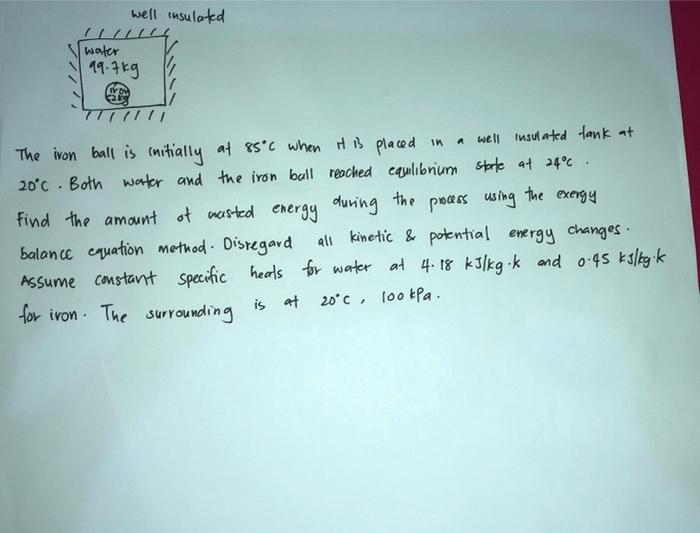 well insulated
water
99.7kg
iron
The iron ball is initially at 85°C when it is placed in a well insulated tank at
20°C. Both water and the iron ball reached equilibrium state at 24°C.
Find the amount of wasted energy during the process using the exergy
balance equation method. Disregard all kinetic & potential energy changes.
Assume constant specific heats for water at 4.18 kJ/kg.k and 0.45 kJ/kg.k
for iron. The surrounding is at 20°C, 100 kPa.